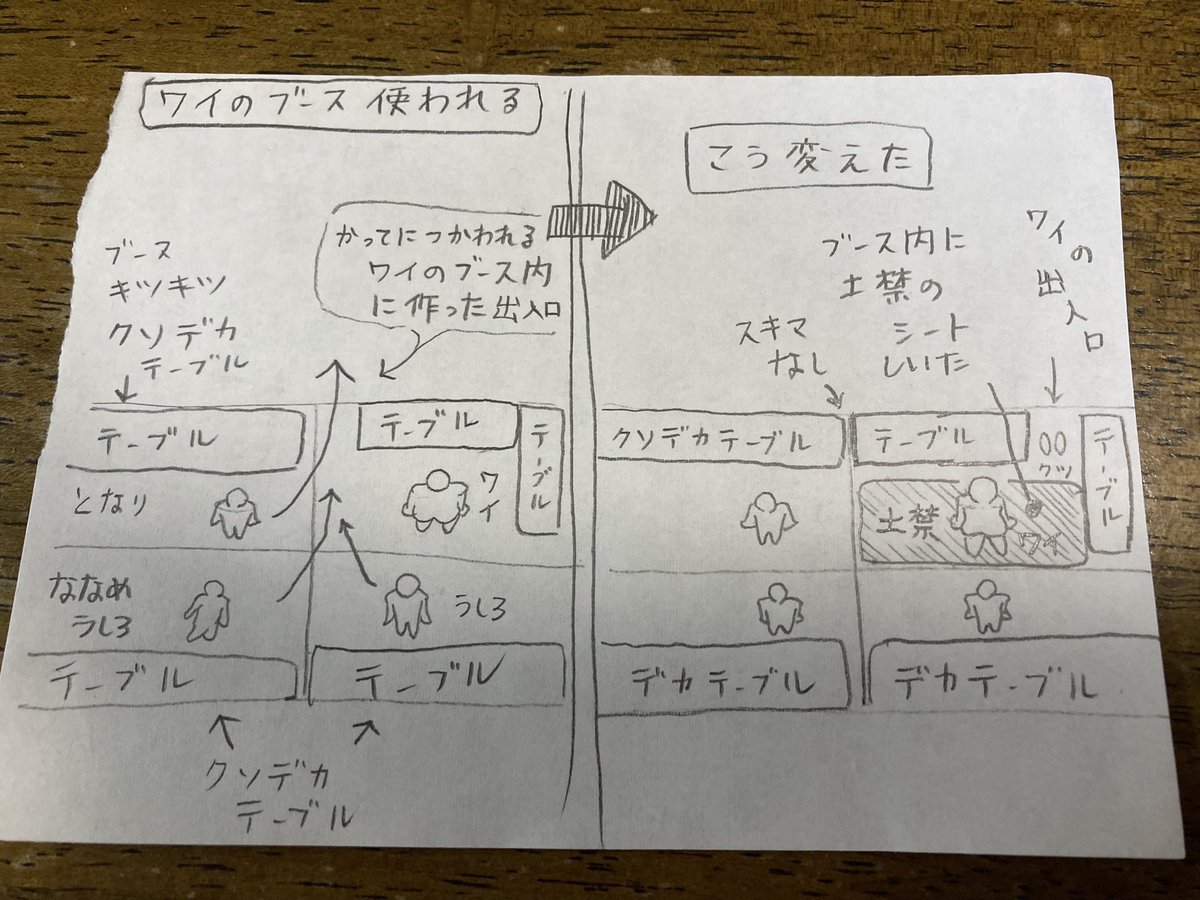 ワイのブース 使われる
ブース
キツキツ
クソデカ
テーブル
かってにつかわれる
ワイのブース内
に作った出入口
テーブル
テーブル
テーブル
となり
ワイ
ななめ
うしろ
うしろ
テーブル
テーブル
クソデカ
テーブル
こう変えた
スキマ
なし
ブース内に
土禁の
シート
しいた
ワイの出入口
クソデカテーブル
テーブル
クツ
テーブル
土禁
ワイ
デカテーブル
デカテーブル